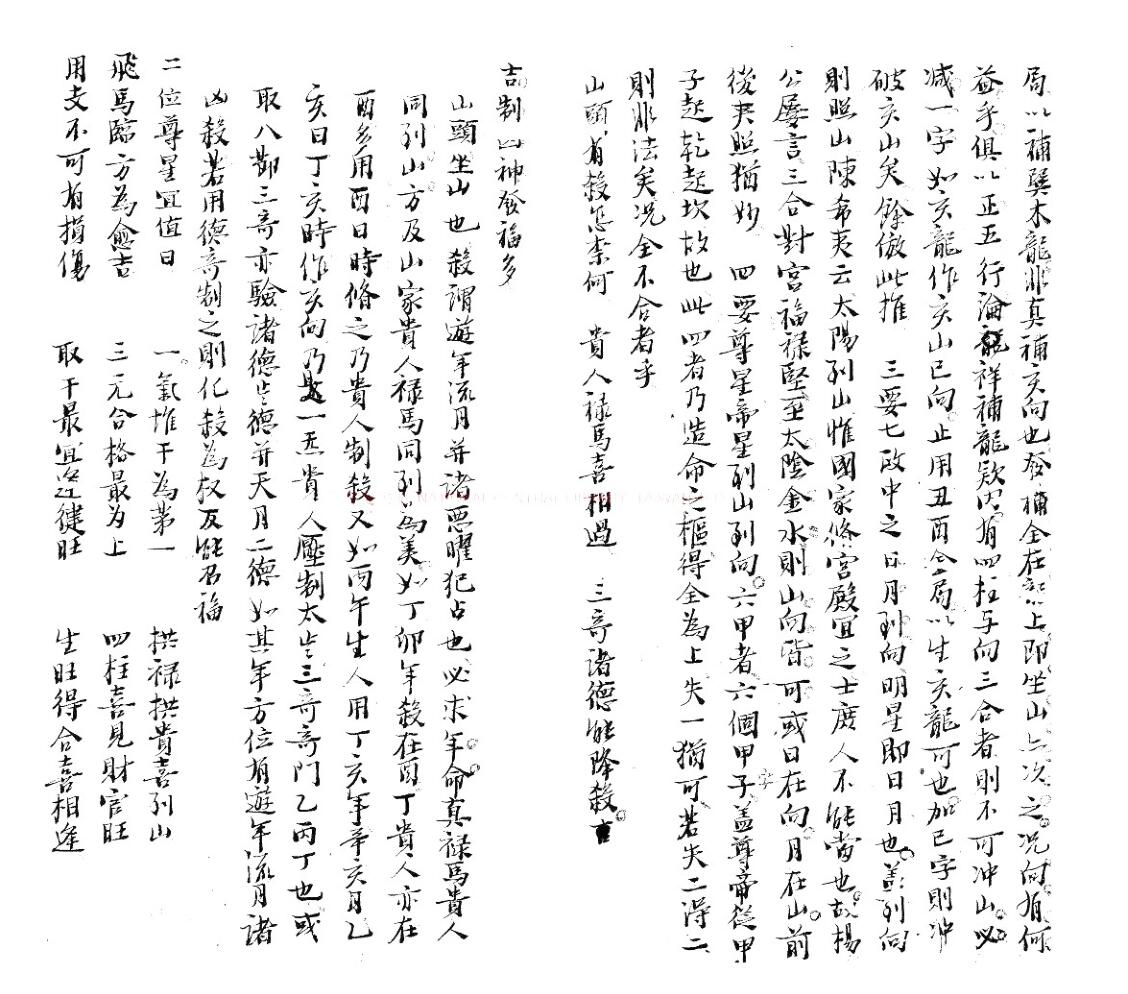 局以補巽木龍非真補亥向也蓋補全在龍上即坐山亦次之况向有何
益乎俱以正五行論龍祥補龍欵內有四柱与向三合者則不可冲山必
減一字如亥龍作亥山巳向止用丑酉合局以生亥龍可也加巳字則冲
破亥山矣餘倣此推　三要七政中之日月到向明星即日月也盖到向
則照山陳希夷云太陽到山惟國家修宮殿宜之士庶人不能當也故楊
公屡言三合對宮福禄堅至太陰金水則山向皆可或日在向月在山前
後夾照猶妙　四要尊星帝星到山到向六甲者六個甲子盖尊帝從甲
子起乾起坎故也此四者乃造命之樞得全為上失一猶可若失二得二
則非法矣况全不合者乎
山頭有殺怎奈何　貴人禄馬喜相過　三奇諸德能降殺
吉制凶神發福多
山頭坐山也殺謂遊年流月并諸惡曜犯占也必求年命真禄馬貴人
同到山方及山家貴人禄馬同到為美如丁卯年殺在酉丁貴人亦在
酉多用酉日時修之乃貴人制殺又如丙午生人用丁亥年辛亥月乙
亥日丁亥時作亥向乃是一氣貴人壓制太歲三奇奇門乙丙丁也或
取八節三奇亦驗諸德歲德并天月二德如其年方位有遊年流月諸
凶殺若用德奇制之則化殺為权反能召福
二位尊星宜值日　一氣堆干為第一　拱禄拱貴喜到山
飛馬臨方為愈吉　三元合格最為上　四柱喜見財官旺
用支不可有損傷　取干最宜逢健旺　生旺得合喜相逢